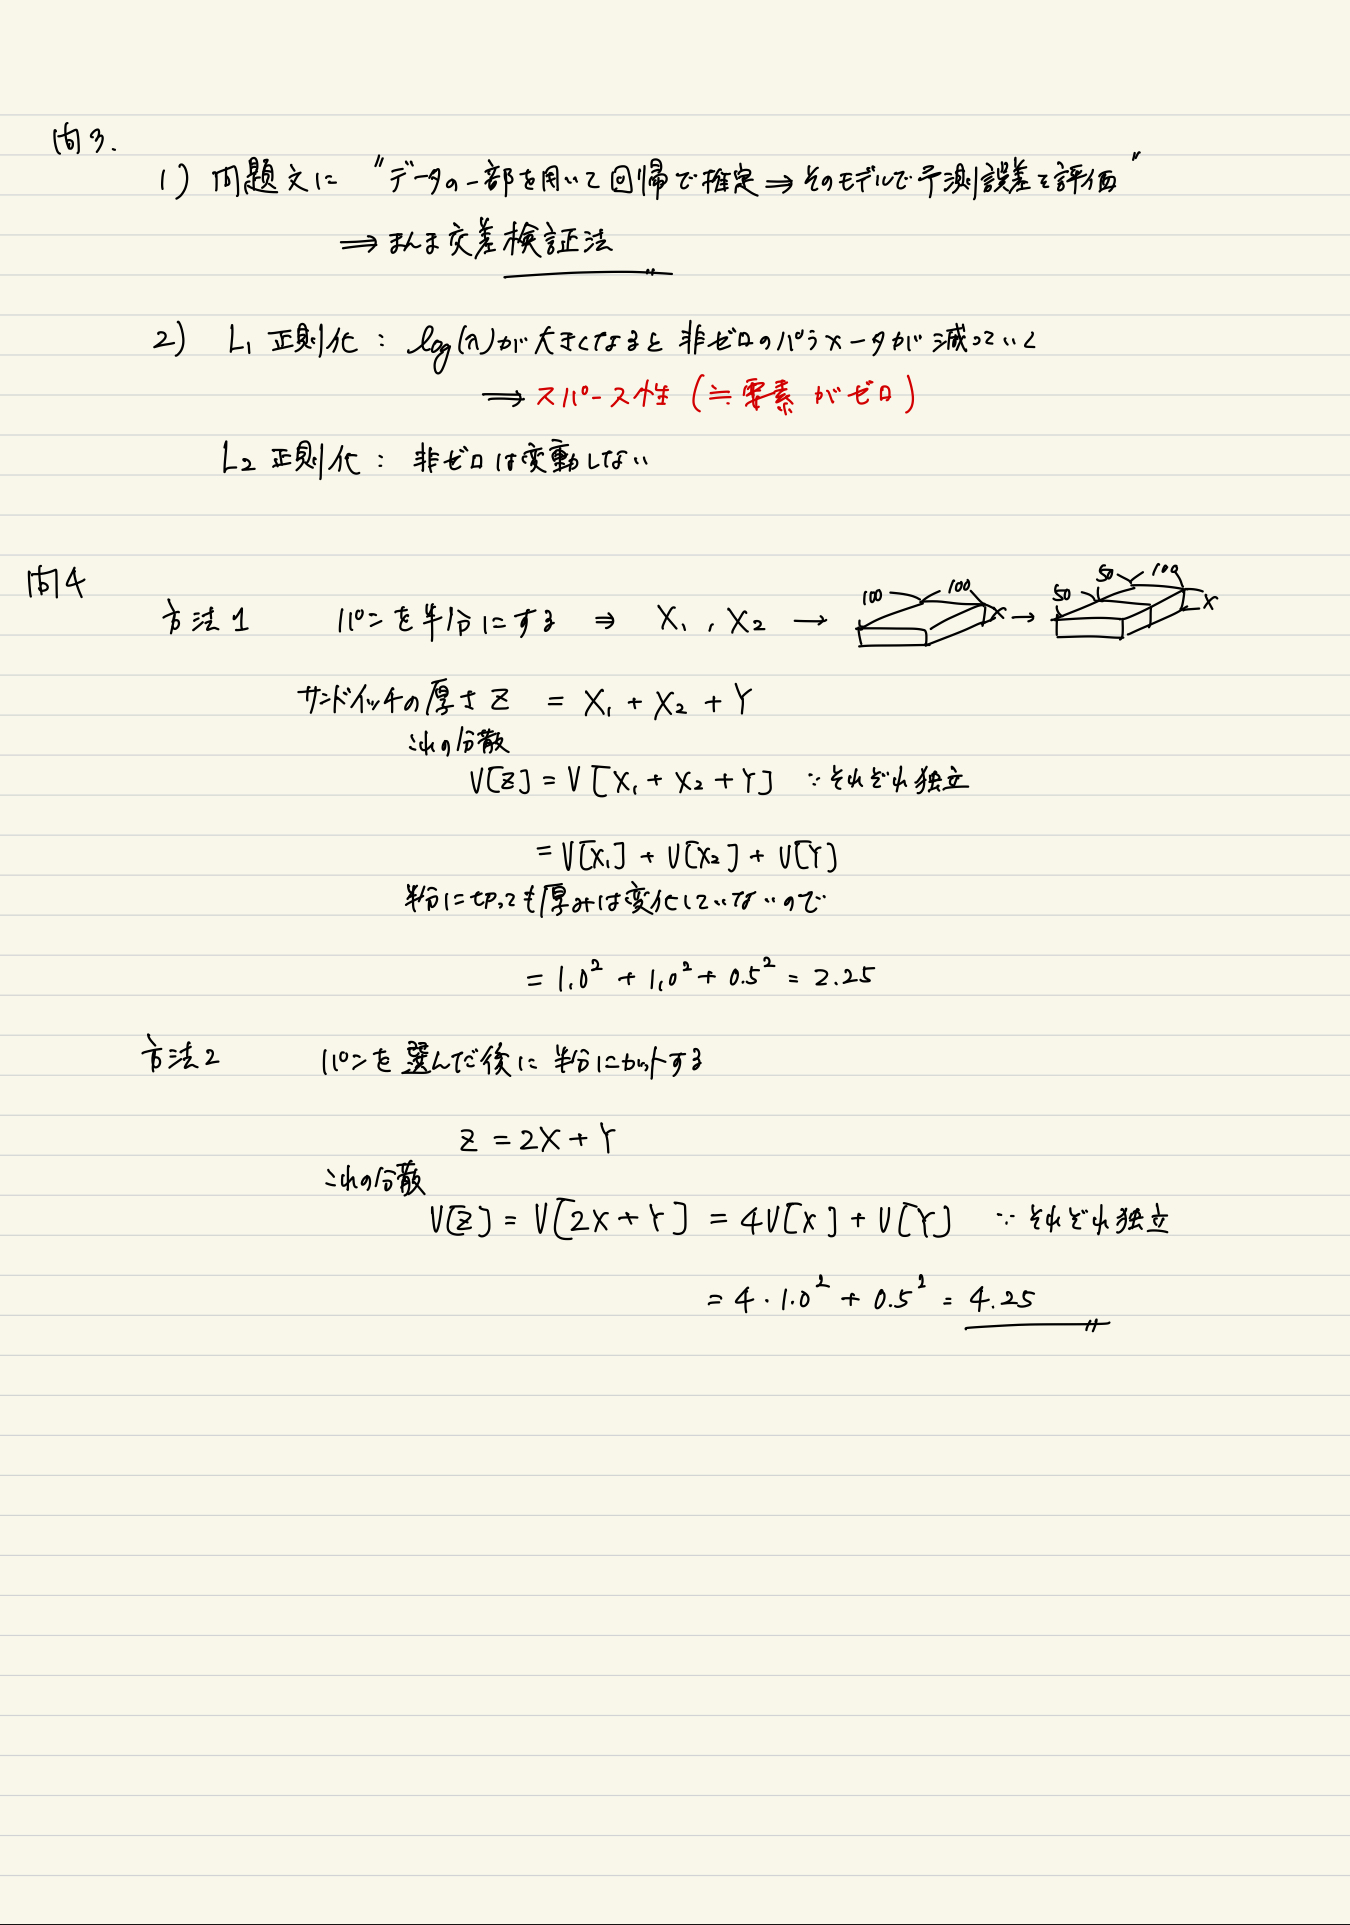 問3.
1) 問題文に "データの一部を用いて回帰で推定 ⇒ そのモデルで予測誤差を評価"
⇒ まんま交差検証法
2) L₁ 正則化 : log(λ)が大きくなると非ゼロのパラメータが減っていく
⇒ スパース性 (≒ 要素がゼロ)
L₂ 正則化 : 非ゼロは変動しない
問4
方法1 パンを半分にする ⇒ X₁ , X₂ → 100 100 X → 50 50 100 X
サンドイッチの厚さ Z = X₁ + X₂ + Y
これの分散
V[Z] = V[X₁ + X₂ + Y] ∵ それぞれ独立
= V[X₁] + V[X₂] + V[Y]
半分に切っても厚みは変化していないので
= 1.0² + 1.0² + 0.5² = 2.25
方法2 パンを選んだ後に半分にカットする
Z = 2X + Y
これの分散
V[Z] = V[2X + Y] = 4V[X] + V[Y] ∵ それぞれ独立
= 4・1.0² + 0.5² = 4.25